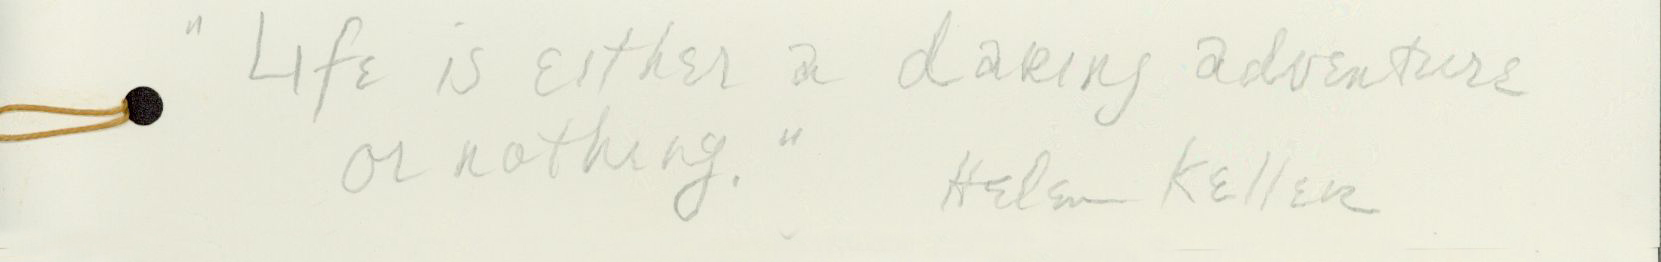 "Life is either a daring adventure
or nothing." Helen Keller